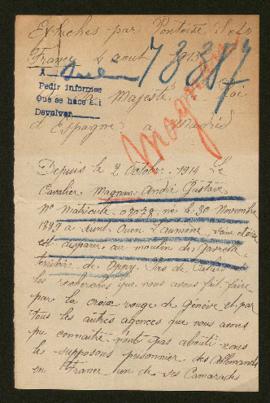 par Pontoise
France 2 aout
73387
A
Pedir informes
Que se hace a.i
Devolver
Majesté Roi
d'Espagne a Madrid
Magnan
Depuis le 2 Octobre 1914 le
Cavalier Magnan André Gustave
N° Matricule né le 30 Novembre
a Saint Ouen l'aumone
est disparu au moulin
de Oppy Pas de Calais
les recherches que nous avons fait faire
par la croix rouge de Génève et par
tous les autres agences que nous avons
pu connaitre n'ont pas abouti nous
le supposons prisonnier des Allemands
en France un de ses Camarades